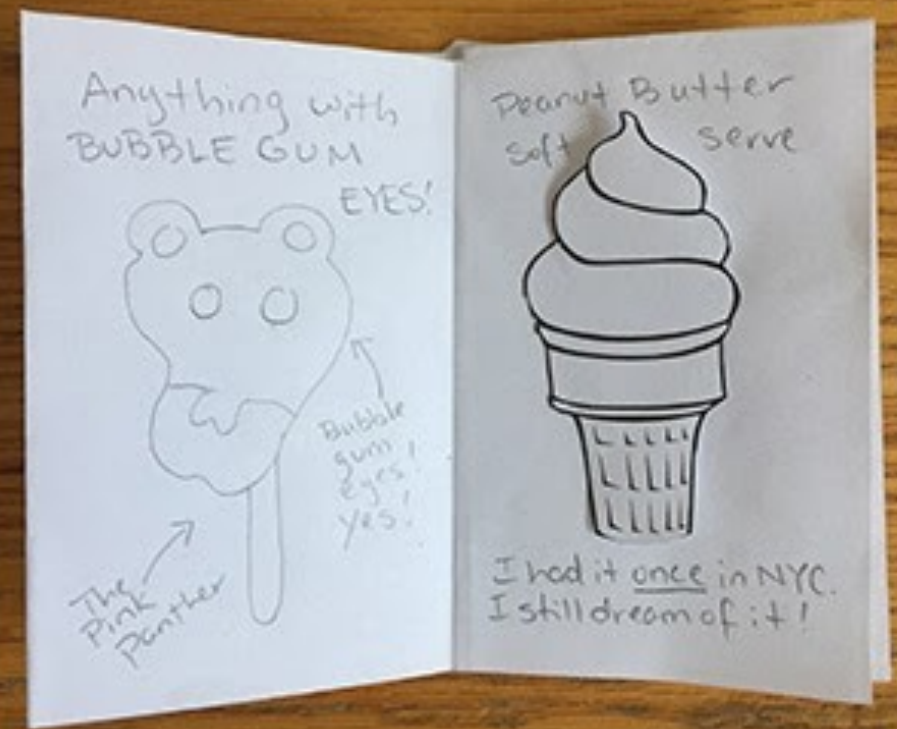 Anything with
BUBBLE GUM
EYES!
Bubble
gum
eyes!
Yes!
The
Pink
Panther
Peanut Butter
Soft serve
I had it once in NYC.
I still dream of it!